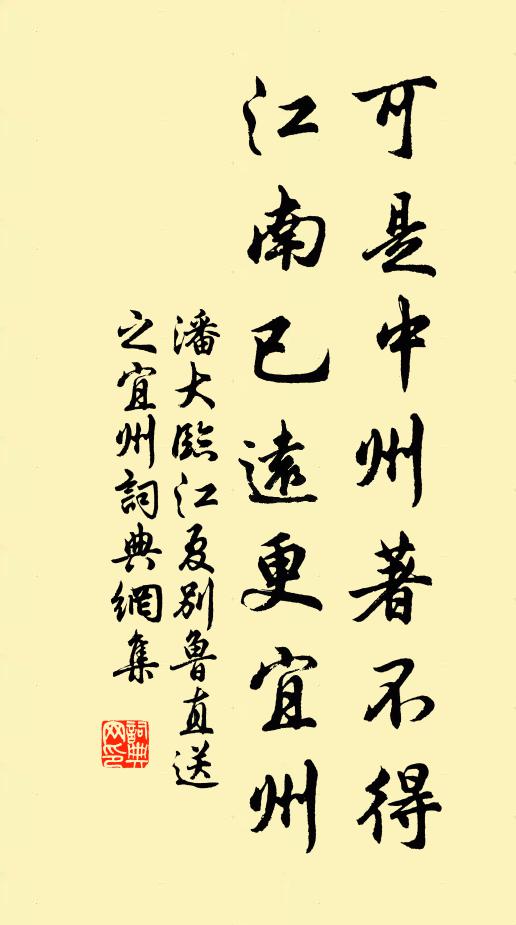 可是中州著不得
江南已遠更宜州
潘大臨江夏別魯直送
之宜州詞典網集
詞典
网印